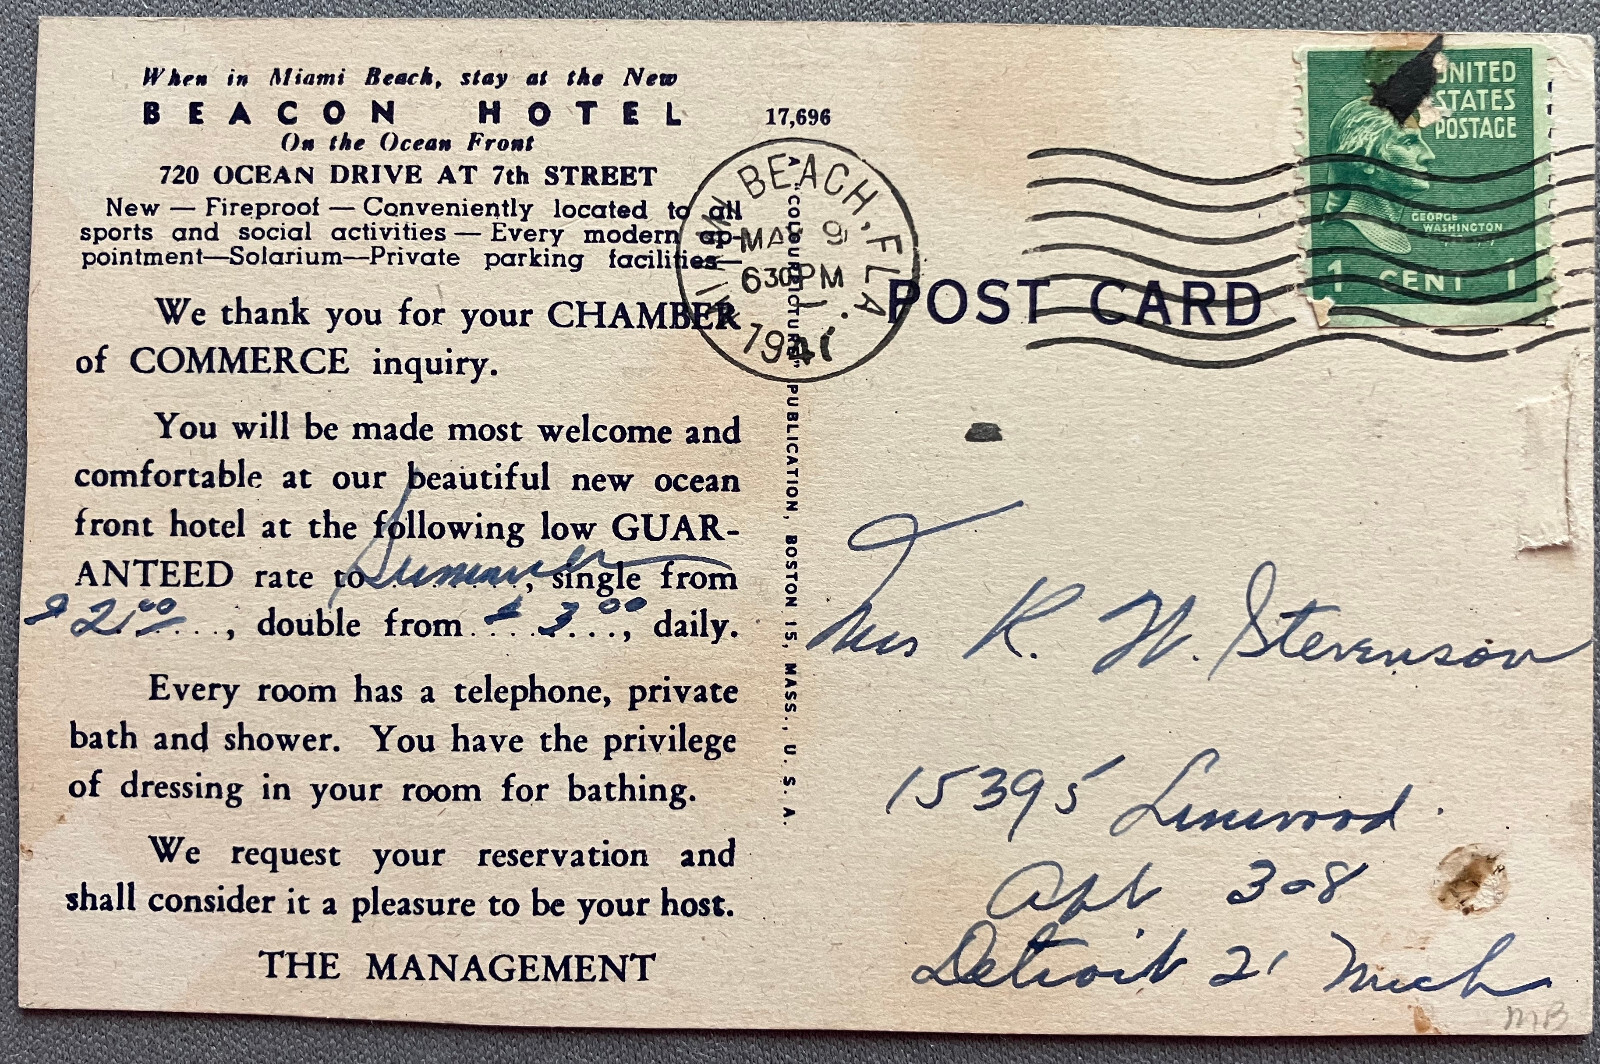 When in Miami Beach, stay at the New
BEACON HOTEL
On the Ocean Front
720 OCEAN DRIVE AT 7th STREET
New — Fireproof — Conveniently located to all
sports and social activities — Every modern ap-
pointment—Solarium—Private parking facilities—
We thank you for your CHAMBER
of COMMERCE inquiry.
You will be made most welcome and
comfortable at our beautiful new ocean
front hotel at the following low GUAR-
ANTEED rate to Summer, single from
$2.00....., double from....$3.00..., daily.
Every room has a telephone, private
bath and shower. You have the privilege
of dressing in your room for bathing.
We request your reservation and
shall consider it a pleasure to be your host.
THE MANAGEMENT
17,696
"COLOURPICTURE" PUBLICATION, BOSTON 15, MASS., U. S. A.
MIAMI BEACH, FLA.
MAY 9
630 PM
194
POST CARD
UNITED
STATES
POSTAGE
GEORGE
WASHINGTON
1 CENT 1
Mrs R. W. Stevenson
15395 Linwood.
Apt 308
Detroit 21 Mich
MB